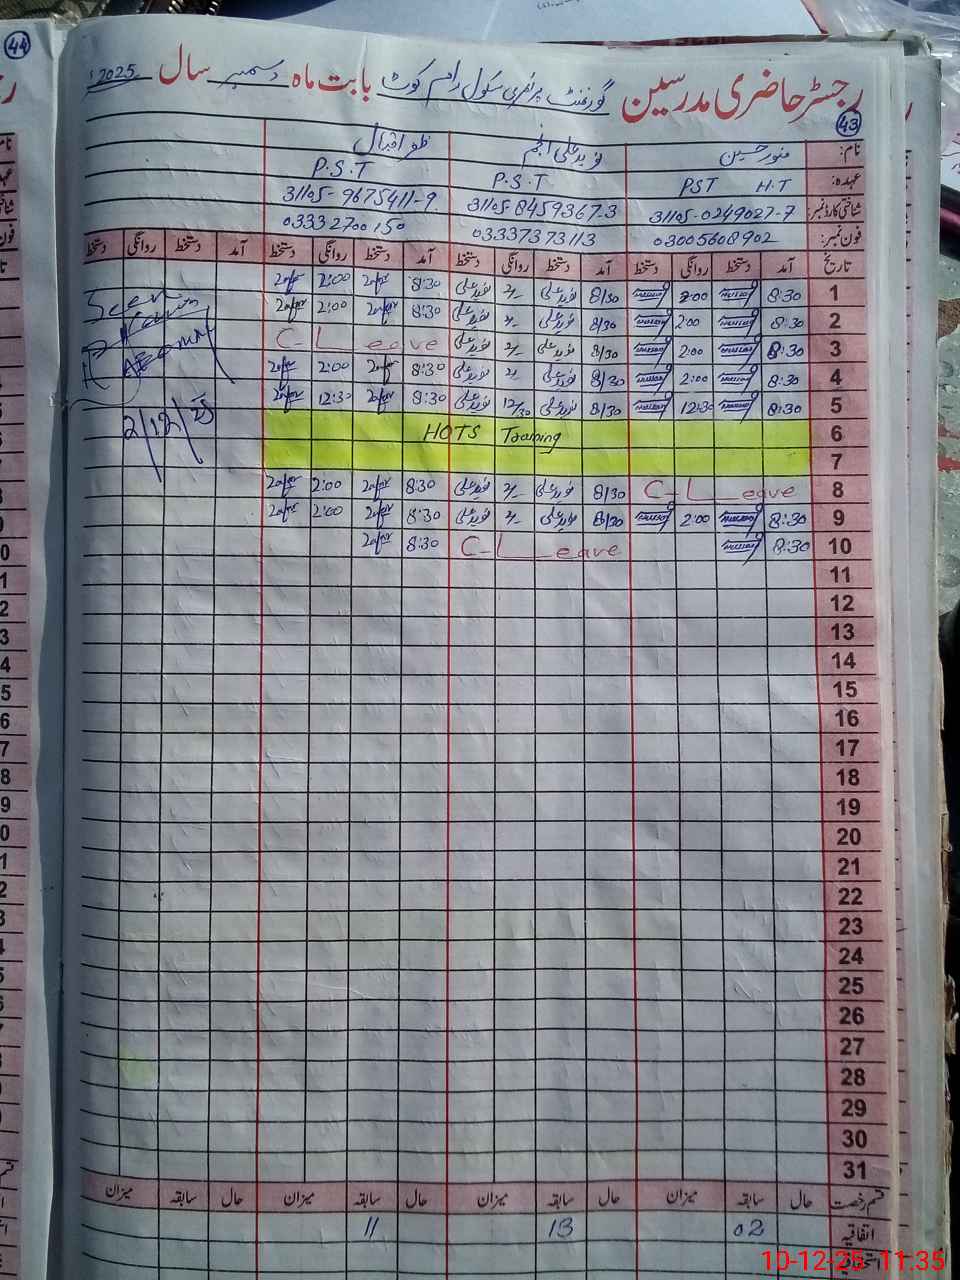 44
رجسٹر حاضری مدرسین گورنمنٹ پرائمری سکول رام کوٹ بابت ماہ دسمبر سال 2025ء
43
نام: منور حسین نوید علی انجم ظفر اقبال
عہدہ: PST H.T P.S.T P.S.T
شناختی کارڈ نمبر: 31105-0249027-7 31105-8459367-3 31105-9675411-9
فون نمبر: 03005608902 03337373113 03332700150
تاریخ آمد دستخط روانگی دستخط آمد دستخط روانگی دستخط آمد دستخط روانگی دستخط آمد دستخط روانگی دستخط
1 8:30 2:00 8/30 نوید علی 2/- نوید علی 8:30 ظفر 2:00 ظفر
2 8:30 2:00 8/30 نوید علی 2/- نوید علی 8:30 ظفر 2:00 ظفر
3 8:30 2:00 8/30 نوید علی 2/- نوید علی C-Leave
4 8:30 2:00 8/30 نوید علی 2/- نوید علی 8:30 ظفر 2:00 ظفر
5 8:30 12:30 8/30 نوید علی 12/30 نوید علی 8:30 ظفر 12:30 ظفر
6 HOTS Training
7
8 C-Leave 8/30 نوید علی 2/- نوید علی 8:30 ظفر 2:00 ظفر
9 8:30 2:00 8/30 نوید علی 2/- نوید علی 8:30 ظفر 2:00 ظفر
10 8:30 C-Leave 8:30 ظفر
11
12
13
14
15
16
17
18
19
20
21
22
23
24
25
26
27
28
29
30
31
Seen
2/12/25
قسم رخصت حال سابقہ میزان حال سابقہ میزان حال سابقہ میزان حال سابقہ میزان
اتفاقیہ 02 13 11
استحقاقیہ
10-12-25 11:35